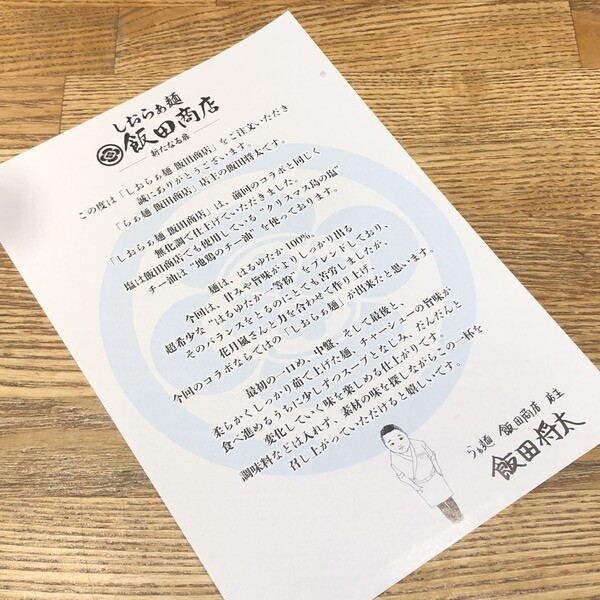 しおらぁ麺
飯田商店
新たなる扉
この度は「しおらぁ麺 飯田商店」をご注文いただき
誠にありがとうございます。
「らぁ麺 飯田商店」店主の飯田将太です。
「しおらぁ麺 飯田商店」は、前回のコラボと同じく
無化調で仕上げていただきました。
塩は飯田商店でも使用している"クリスマス島の塩"
チー油は"地鶏のチー油"を使っております。
麺は、はるゆたか100%。
今回は、甘みや旨味がよりしっかり出る
超希少な"はるゆたか一等粉"をブレンドしており、
そのバランスをとるのにとても苦労しましたが、
花月嵐さんと力を合わせて作り上げ、
今回のコラボならではの「しおらぁ麺」が出来たと思います。
最初の一口め、中盤、そして最後と、
柔らかくしっかり茹で上げた麺、チャーシューの旨味が
食べ進めるうちに少しずつスープとなじみ、だんだんと
変化していく味を楽しめる仕上がりです。
調味料などは入れず、素材の味を探しながらこの一杯を
召し上がっていただけると嬉しいです。
らぁ麺 飯田商店 店主
飯田将太